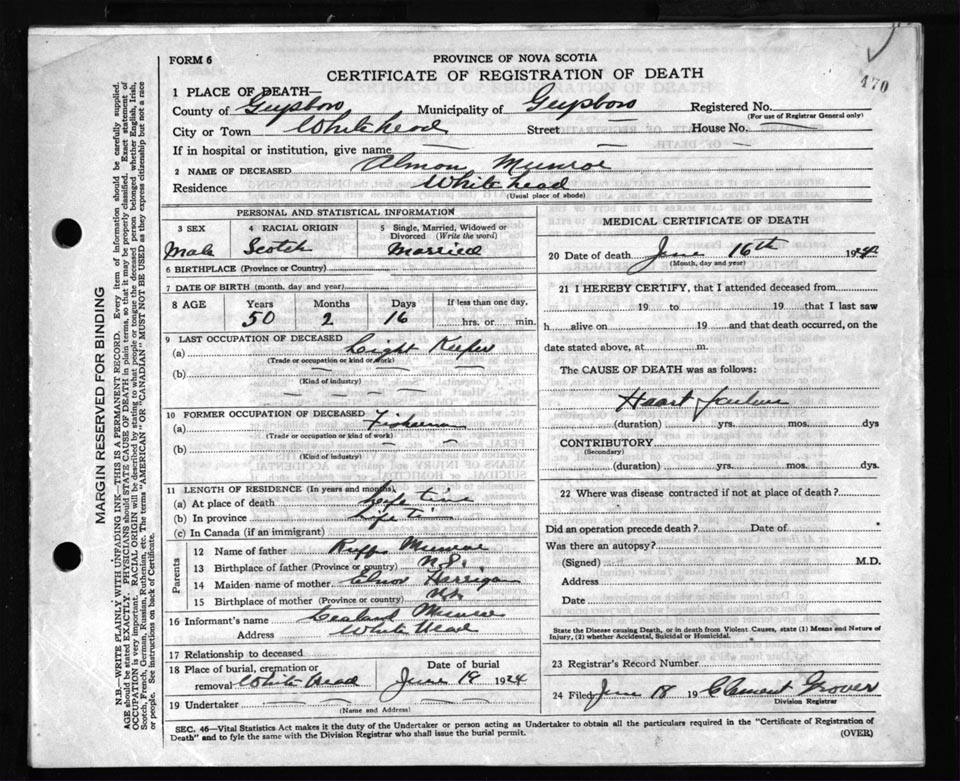 FORM 6
PROVINCE OF NOVA SCOTIA
CERTIFICATE OF REGISTRATION OF DEATH
470
1 PLACE OF DEATH—
County of Guysboro Municipality of Guysboro Registered No.
(For use of Registrar General only)
City or Town White head Street — House No. —
If in hospital or institution, give name — —
2 NAME OF DECEASED Almon Munroe
Residence White head
(Usual place of abode)
PERSONAL AND STATISTICAL INFORMATION
3 SEX 4 RACIAL ORIGIN 5 Single, Married, Widowed or Divorced (Write the word)
Male Scotch Married
6 BIRTHPLACE (Province or Country)
7 DATE OF BIRTH (month, day and year)
8 AGE Years Months Days If less than one day.
50 2 16 hrs. or min.
9 LAST OCCUPATION OF DECEASED
(a) Light Keeper
(Trade or occupation or kind of work)
(b) — — —
(Kind of industry)
— — —
10 FORMER OCCUPATION OF DECEASED
(a) Fisherman
(Trade or occupation or kind of work)
(b) — —
(Kind of industry)
11 LENGTH OF RESIDENCE (In years and months)
(a) At place of death Life Time
(b) In province Life Ti
(c) In Canada (if an immigrant)
Parents
12 Name of father Munroe
13 Birthplace of father (Province or country) N.S.
14 Maiden name of mother Harrigan
15 Birthplace of mother (Province or country) N.S.
16 Informant's name Munroe
Address White Head
17 Relationship to deceased
18 Place of burial, cremation or removal White head
Date of burial
June 19 1924
19 Undertaker
(Name and Address)
MEDICAL CERTIFICATE OF DEATH
20 Date of death June 16th 1924
(Month, day and year)
21 I HEREBY CERTIFY, that I attended deceased from
19 to 19 that I last saw
h alive on 19 and that death occurred, on the
date stated above, at m.
The CAUSE OF DEATH was as follows:
Haart failure
(duration) yrs. mos. dys
CONTRIBUTORY
(Secondary)
(duration) yrs. mos. dys.
22 Where was disease contracted if not at place of death?
Did an operation precede death? Date of
Was there an autopsy?
(Signed) M.D.
Address
Date
State the Disease causing Death, or in death from Violent Causes, state (1) Means and Nature of
Injury, (2) whether Accidental, Suicidal or Homicidal.
23 Registrar's Record Number
24 Filed June 18 19 Clement Grover
Division Registrar
SEC. 46—Vital Statistics Act makes it the duty of the Undertaker or person acting as Undertaker to obtain all the particulars required in the "Certificate of Registration of
Death" and to fyle the same with the Division Registrar who shall issue the burial permit.
(OVER)
MARGIN RESERVED FOR BINDING
N.B.—WRITE PLAINLY WITH UNFADING INK—THIS IS A PERMANENT RECORD. Every item of information should be carefully supplied.
AGE should be stated EXACTLY. PHYSICIANS should STATE CAUSE OF DEATH in plain terms, so that it may be properly classified. Exact statement of
OCCUPATION is very important. RACIAL ORIGIN will be described by stating to what people or tongue the deceased person belonged whether English, Irish,
Scotch, French, German, Russian, Ruthenian, etc. The terms "AMERICAN" OR "CANADIAN" MUST NOT BE USED as they express citizenship but not a race
or people. See instructions on back of Certificate.